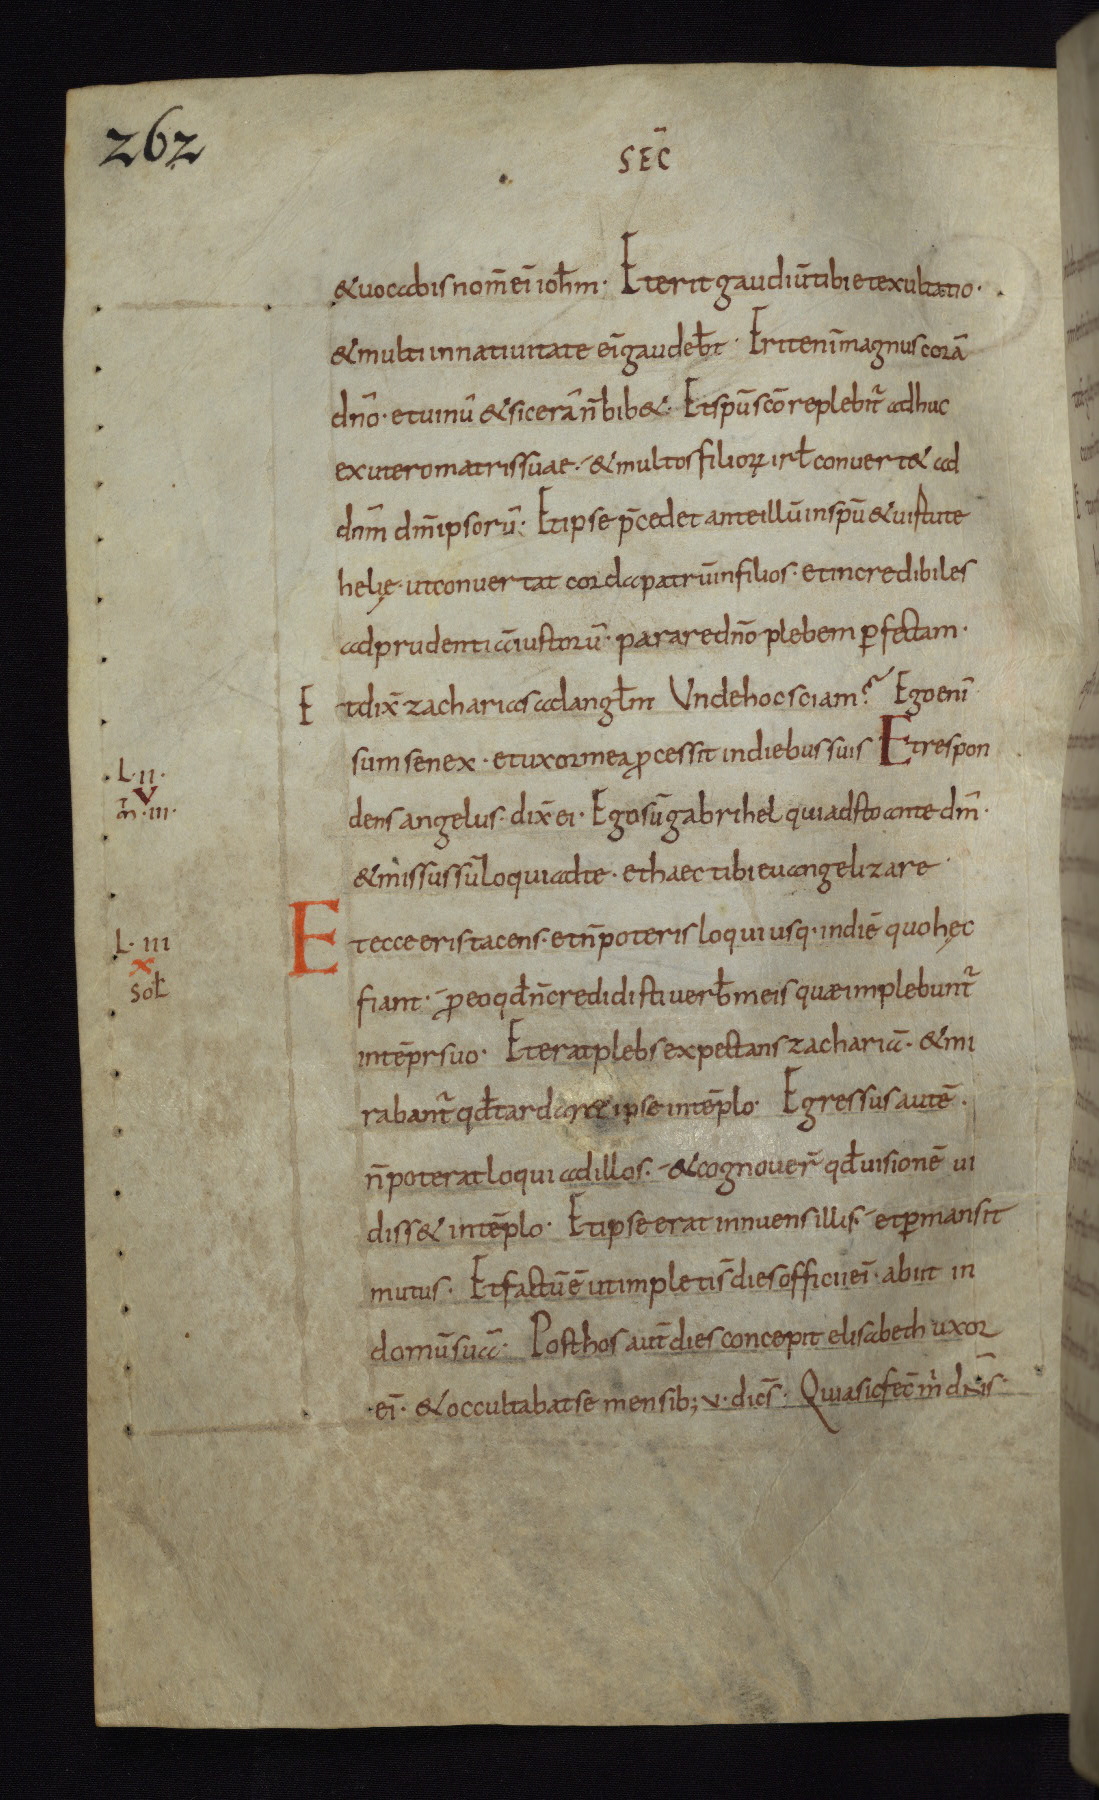 262
SEC̄
& uocabis nom̄ ei᷒ ioh̄m. Et erit gaudiū tibi et exultatio.
& multi in natiuitate ei᷒ gaudeb̄t. Erit eni᷒ magnus corā
dn̄o. et uinū & sicerā n̄ bib&. Et spū scō replebit᷒ adhuc
ex utero matris suae. & multos filioꝝ isrl̄ conuert& ad
dn̄m dm̄ ipsorū. Et ipse p̄cedet ante illū in spū & uirtute
helię. ut conuertat corda patrū in filios. et incredibiles
ad prudentiā iustorū. parare dn̄o plebem ꝑfectam.
Et dix̄ zacharias ad angl̄m Unde hoc sciam? Ego eni᷒
sum senex. et uxor mea ꝓcessit in diebus suis Et respon
L. II.
V
m̄. III.
dens angelus. dix̄ ei. Ego sū gabrihel qui adsto ante dm̄.
& missus sū loqui ad te. et haec tibi euangelizare
L. III
X
Sol̄
Et ecce eris tacens. et n̄ poteris loqui usq. in diē quo hęc
fiant. ꝓ eo qd̄ n̄ credidisti uerb̄ meis quae implebunt᷒
in tēpr suo. Et erat plebs expectans zachariā. & mi
rabant᷒ qd̄ tardar& ipse in tēplo. Egressus autē.
n̄ poterat loqui ad illos. & cognouer̄ qd̄ uisionē ui
diss& in tēplo. Et ipse erat innuens illis. et ꝑmansit
mutus. Et factū ē ut impleti s̄ dies officii ei᷒. abiit in
domū suā. Post hos aut̄ dies concepit elisabeth uxor
ei᷒. & occultabat se mensib; v. dic̄s. Quia sic fec̄ m̍ dn̄s